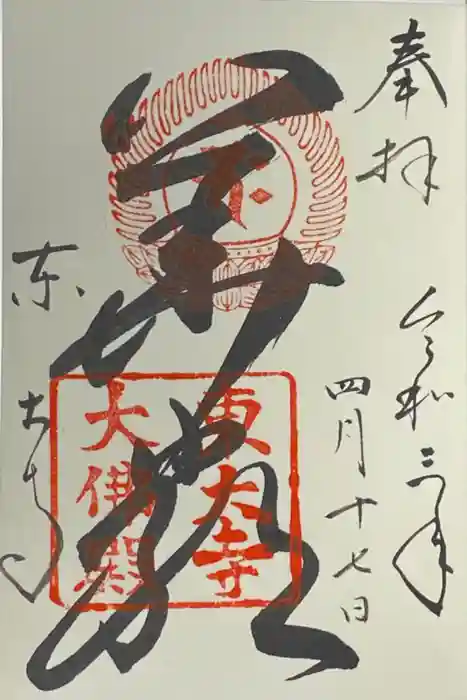 奉拝
令和三年
四月十七日
華厳
東大寺
東大寺
大佛殿